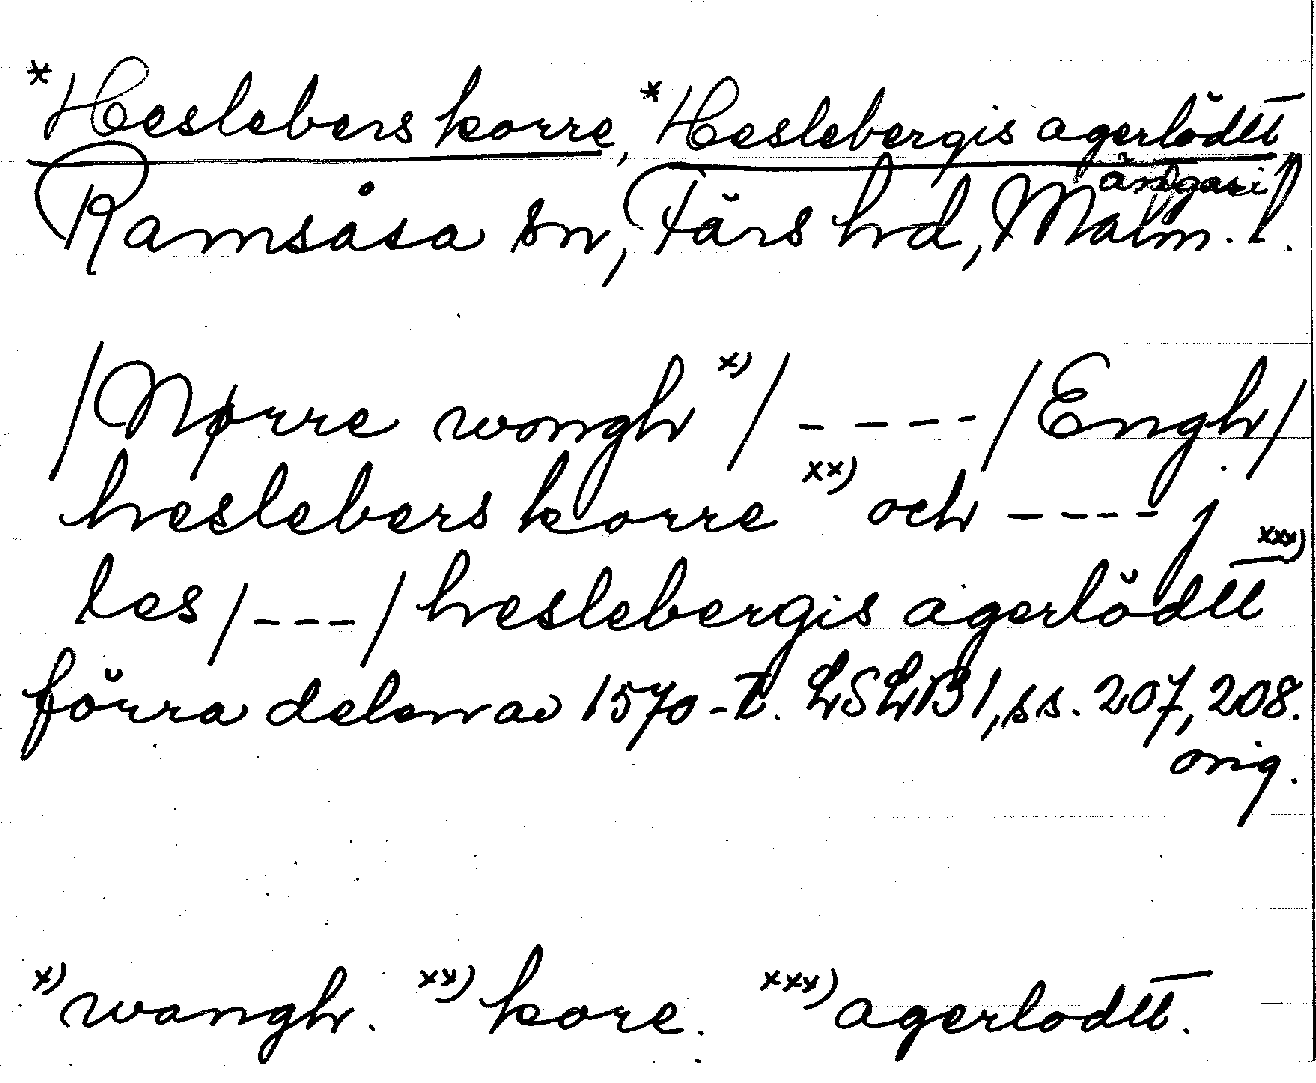 *Heslebers korre, *Heslebergis agerlŏdtt
ängar i
Ramsåsa sn, Färs hd, Malm. l.
/Nørre wongh x)/ ---- /Engh/
heslebers korre xx) och ---- j
les /---/ heslebergis agerlŏdtt xxx)
förra delen av 1570-t. LSLB 1, ss. 207, 208.
orig.
x) wangh. xx) kore. xxx) agerlodtt.